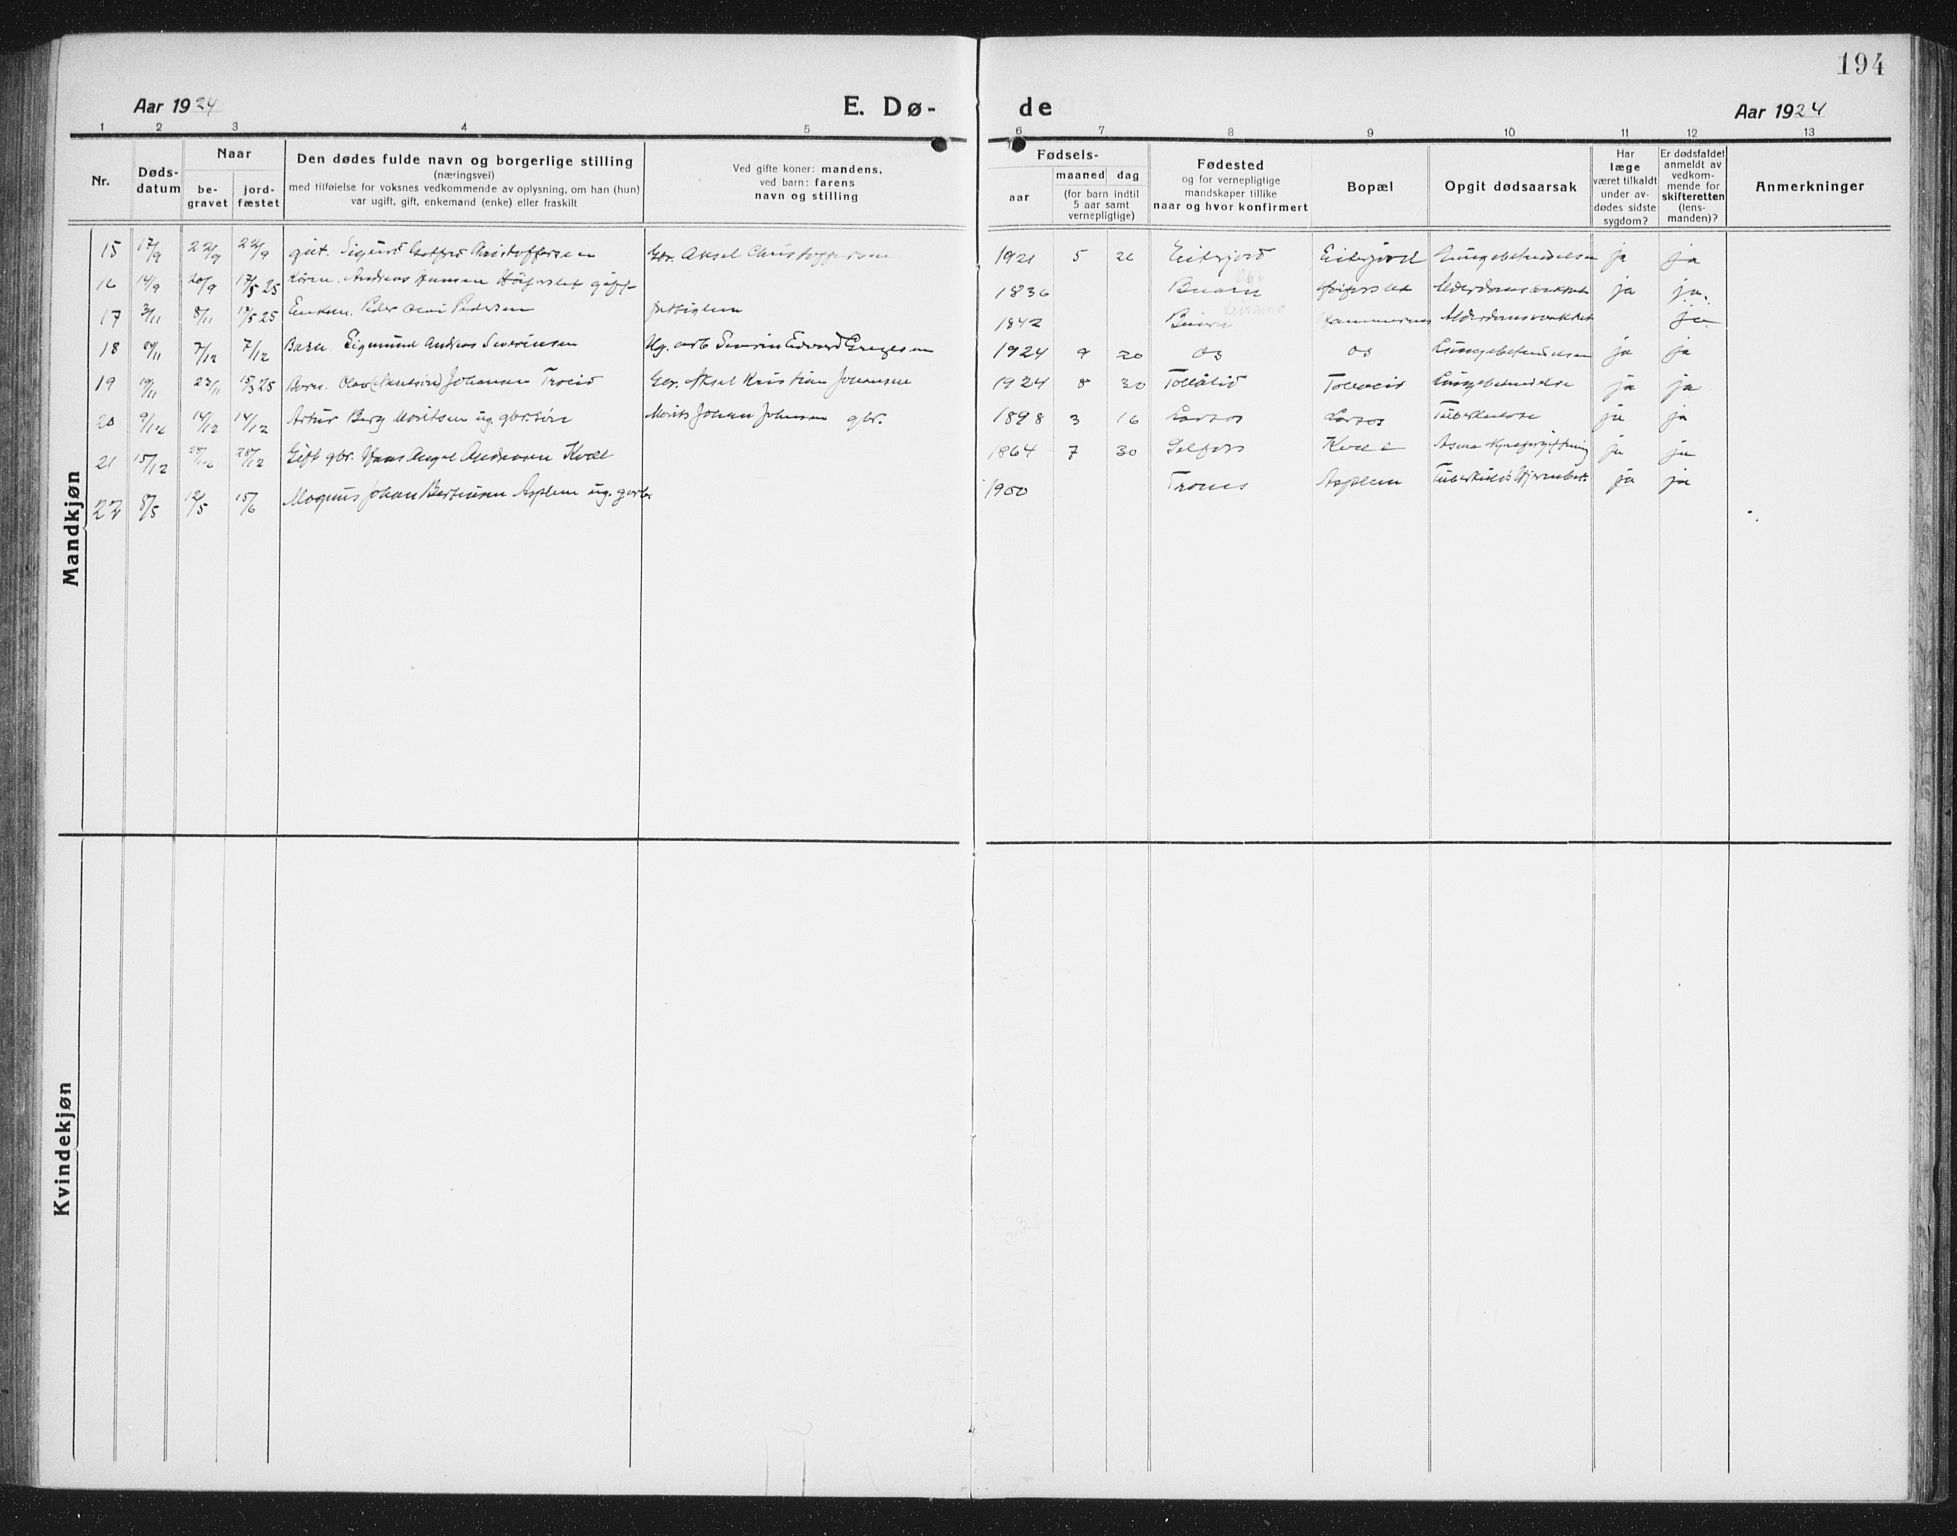 194
Aar 1924
E. Dø-
de
Aar 1924
1 2 3 4 5 6 7 8 9 10 11 12 13
Nr.
Døds-
datum
Naar
be-
gravet
jord-
fæstet
Den dødes fulde navn og borgerlige stilling
(næringsvei)
med tilføielse for voksnes vedkommende av oplysning, om han (hun)
var ugift, gift, enkemand (enke) eller fraskilt
Ved gifte koner: mandens,
ved barn: farens
navn og stilling
Fødsels-
aar
maaned dag
(for barn indtil
5 aar samt
vernepligtige)
Fødested
og for vernepligtige
mandskaper tillike
naar og hvor konfirmert
Bopæl
Opgit dødsaarsak
Har
læge
været tilkaldt
under av-
dødes sidste
sygdom?
Er dødsfaldet
anmeldt av
vedkom-
mende for
skifteretten
(lens-
manden)?
Anmerkninger
Mandkjøn
15 17/9 22/9 22/9 gut. Sigurd Kristoffersen Gbr. Aksel Christoffersen 1921 5 Eiterjord Eiterjord Lungebetendelse ja ja
16 14/9 20/9 17/5 25 Andreas Hansen Høiforslet gift 1836 Beiarn Høiforslet ja ja.
17 3/11 8/11 17/5 25 Enkem. Peder Olai Pedersen 1842 Beiarn ja
18 7/12 7/12 Barn. Sigmund Andreas Severinsen Severin Edvard 1924 9 20 Os Os Lungebetendelse ja ja
19 19/11 23/11 15/3 25 Olav Johansen Gbr. Aksel Kristian Johansen 1924 8 30 Lungebetendelse ja ja
20 9/12 14/12 14/12 Artur Berg Moritsen ug. gbr.søn Morits Johan Johnsen gbr. 1898 3 16 Larsos Larsos Tuberkulose ja ja
21 15/12 28/12 28/12 Gift gbr. Hans Angel Andreasen Kvæl 1864 7 30 Selfors ja ja
22 5/5 12/5 15/6 Magnus Johan Asplem ug. 1900 Trones Asplem ja ja
Kvindekjøn